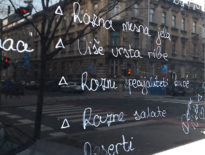 △ Razna mesna jela
△ Više vrsta ribe
△ Razni specijaliteti
△ Razne salate
Deserti